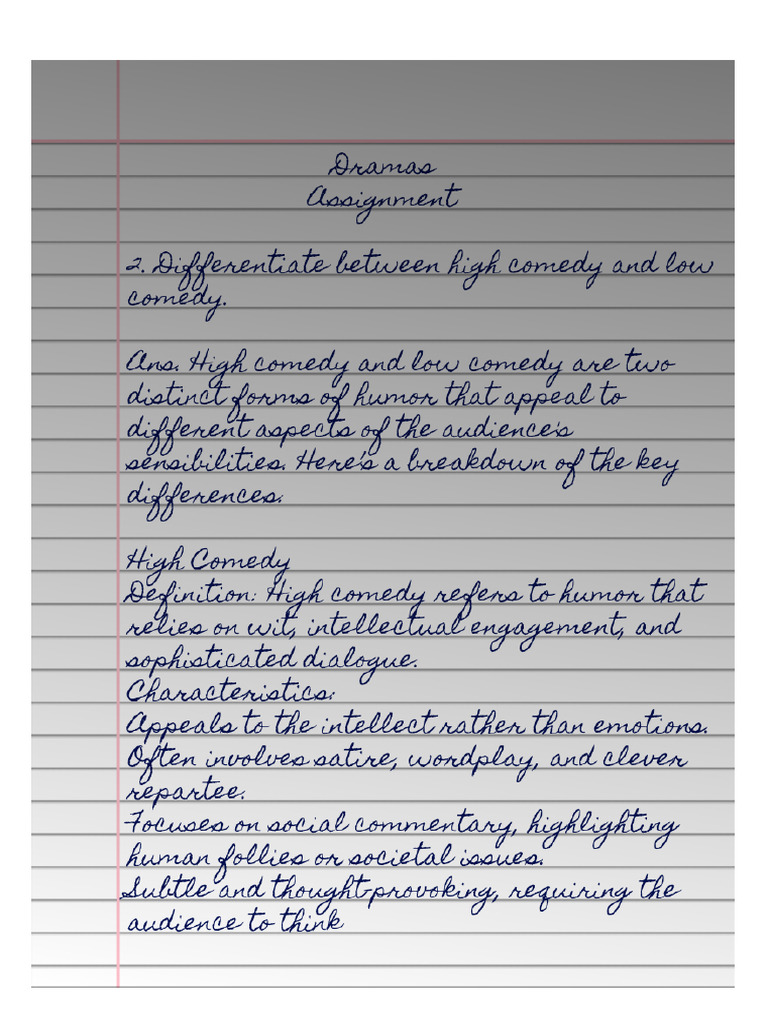 Dramas
Assignment
2. Differentiate between high comedy and low
comedy.
Ans. High comedy and low comedy are two
distinct forms of humor that appeal to
different aspects of the audience's
sensibilities. Here's a breakdown of the key
differences:
High Comedy
Definition: High comedy refers to humor that
relies on wit, intellectual engagement, and
sophisticated dialogue.
Characteristics:
Appeals to the intellect rather than emotions.
Often involves satire, wordplay, and clever
repartee.
Focuses on social commentary, highlighting
human follies or societal issues.
Subtle and thought-provoking, requiring the
audience to think